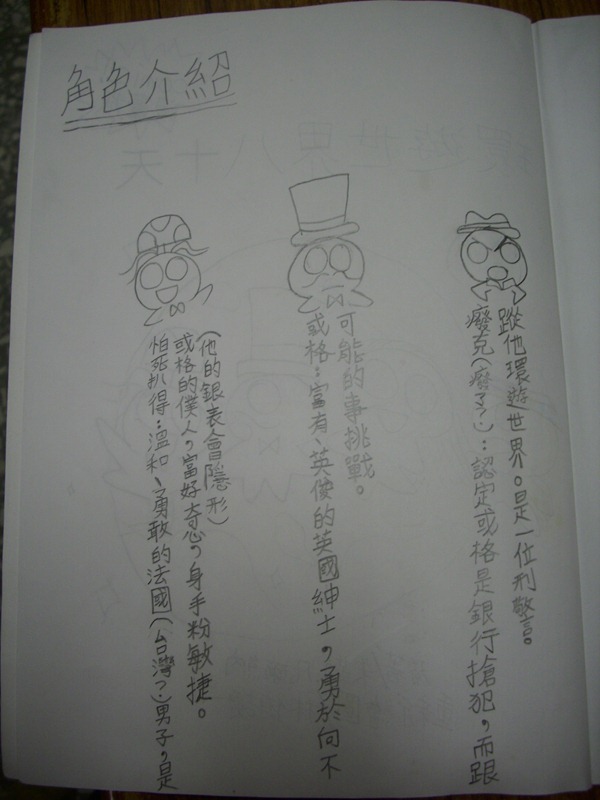 角色介紹
怕死扒得：溫和、勇敢的法國(台灣?)男子，是
或格的僕人，富好奇心，身手粉敏捷。
(他的銀表會隱形)
或格：富有、英俊的英國紳士，勇於向不
可能的事挑戰。
癈克(癈了?)：認定或格是銀行搶犯，而跟
蹤他環遊世界。是一位刑警。